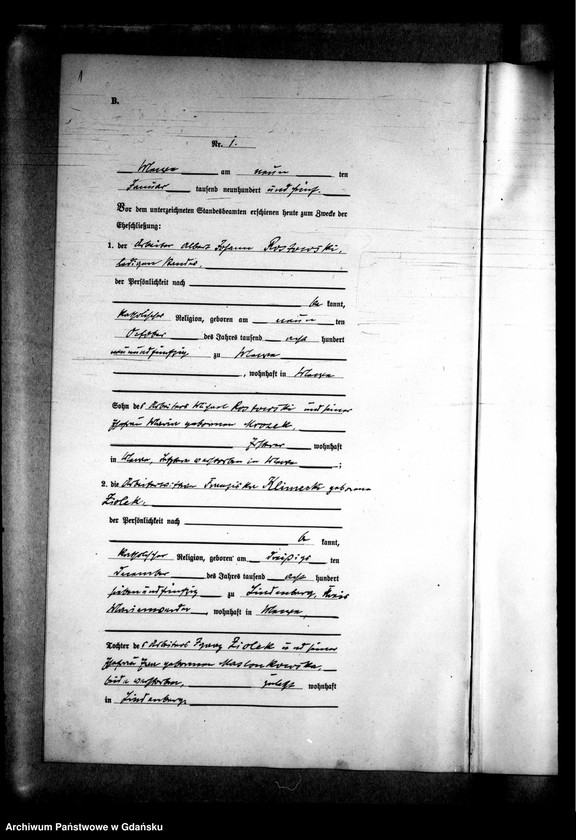 1
B.
Nr. 1.
Mewe am neun ten
Januar tausend neunhundert und fünf.
Vor dem unterzeichneten Standesbeamten erschienen heute zum Zwecke der
Eheschließung:
1. der Arbeiter Albert Johann Rostowski,
ledigen Standes,
der Persönlichkeit nach
be kannt,
katholischer Religion, geboren am neun ten
October des Jahres tausend acht hundert
neunundfünfzig zu Mewe
, wohnhaft in Mewe
Sohn des Arbeiters Michael Rostowski und seiner
Ehefrau Maria geborenen Mrozek,
Ersterer wohnhaft
in Mewe, Letztere verstorben in Mewe ;
2. die Arbeiterwittwe Franziska Klimeck geborene
Ziolek,
der Persönlichkeit nach
be kannt,
katholischer Religion, geboren am dreißigs ten
December des Jahres tausend acht hundert
siebenundfünfzig zu Lindenberg, Kreis
Marienwerder, wohnhaft in Mewe,
Tochter des Arbeiters Ziolek und seiner
Ehefrau geborenen Maslonkowska,
beide verstorben, zuletzt wohnhaft
in Lindenberg
Archiwum Państwowe w Gdańsku